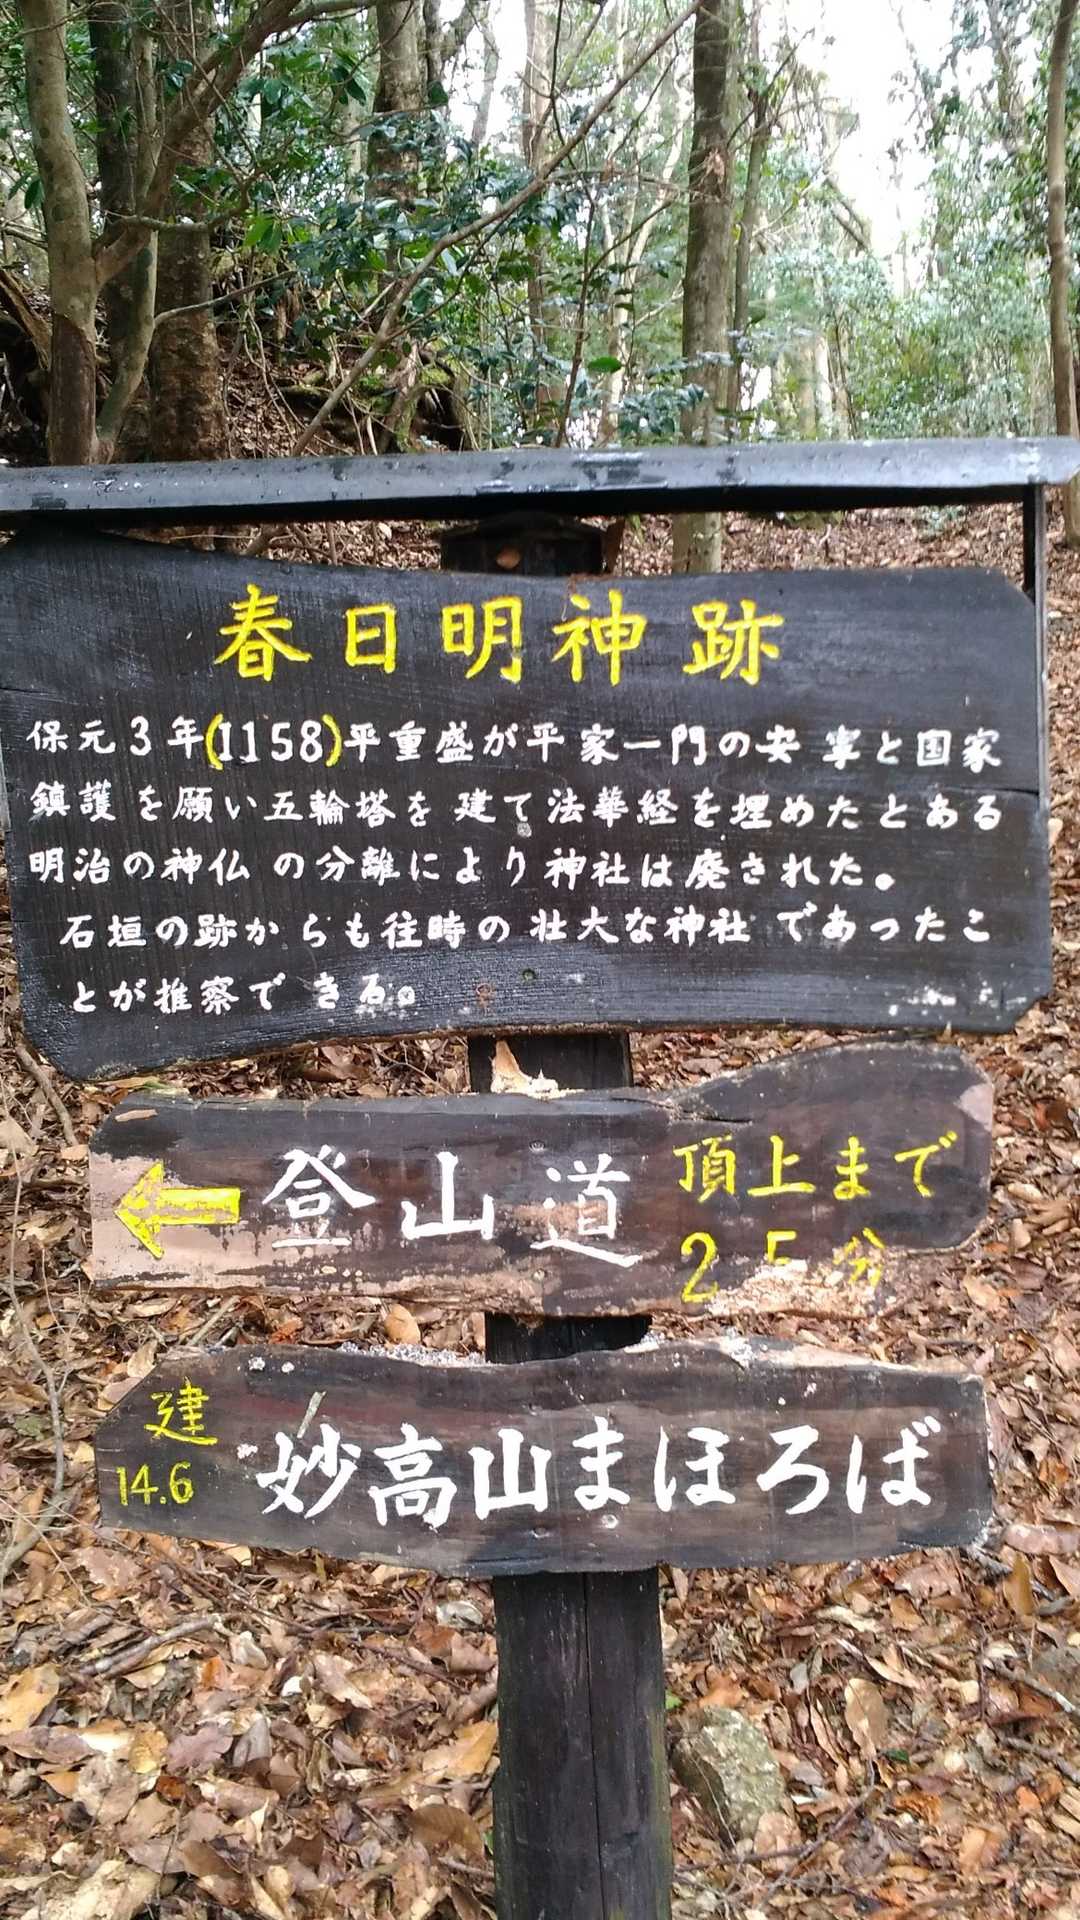 春日明神跡
保元3年(1158)平重盛が平家一門の安寧と国家
鎮護を願い五輪塔を建て法華経を埋めたとある
明治の神仏の分離により神社は廃された。
石垣の跡からも往時の壮大な神社であったこ
とが推察できる。
登山道 頂上まで
25分
建
14.6
妙高山まほろば